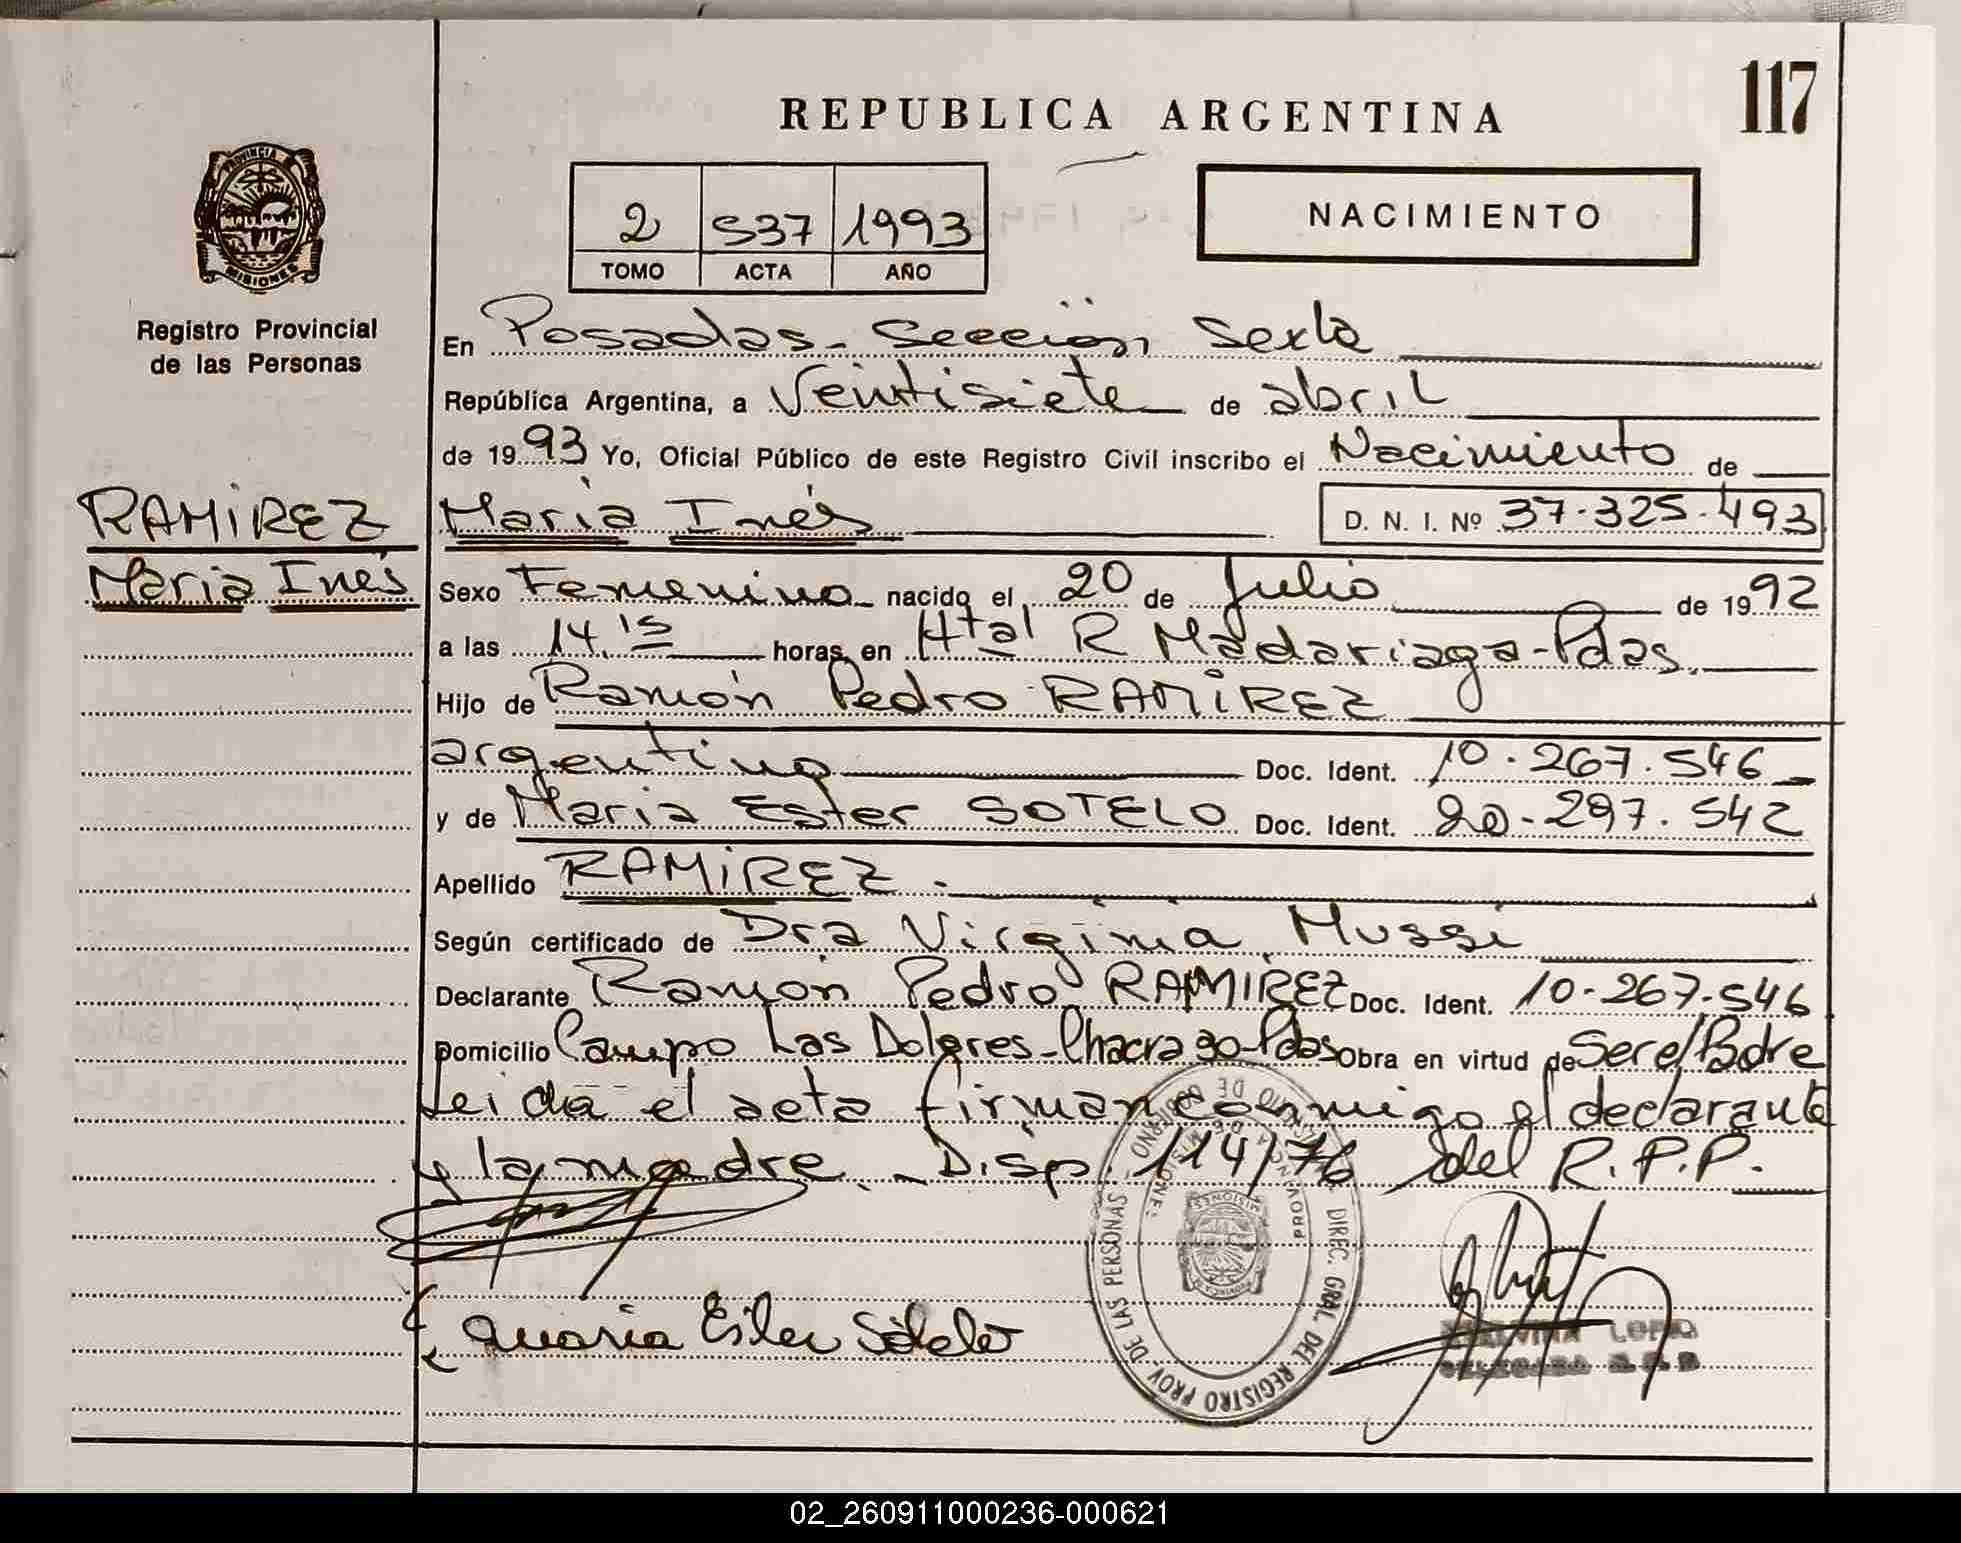 117
REPUBLICA ARGENTINA
PROVINCIA
MISIONES
Registro Provincial
de las Personas
2 537 1993
TOMO ACTA AÑO
NACIMIENTO
En Posadas - Sección Sexta
República Argentina, a Veintisiete de abril
de 1993 Yo, Oficial Público de este Registro Civil inscribo el Nacimiento de
RAMIREZ
María Inés
María Inés D. N. I. Nº 37.325.493
Sexo Femenino nacido el 20 de Julio de 1992
a las 14.15 horas en Htal R Madariaga - Pdas.
Hijo de Ramón Pedro RAMIREZ
argentino Doc. Ident. 10.267.546
y de Maria Ester SOTELO Doc. Ident. 20.297.542
Apellido RAMIREZ.
Según certificado de Dra Virginia Mussi
Declarante Ramón Pedro RAMIREZ Doc. Ident. 10.267.546
Domicilio Campo Las Dolores - Chacra Pdas Obra en virtud de Ser el Padre
Leida el acta firman conmigo el declarante
y la madre. - Disp. 114/76 del R.P.P.
Maria Ester Sotelo
DIREC. GRAL. DEL REGISTRO PROV. DE LAS PERSONAS - MINISTERIO DE GOBIERNO
PROVINCIA DE MISIONES
02_260911000236-000621